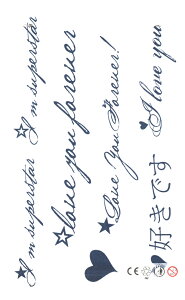 I m superstar
I m superstar
love you forever
Love You Forever!
I love you
好きです
CE